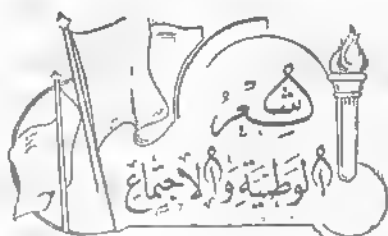 شِعْرُ
الوَطَنِيَّةِ وَالاجْتِمَاع